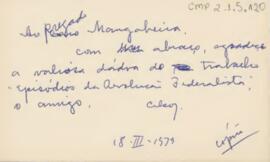 CMP 2.1.5.120
Ao Prezado Mangabeira.
com abraço, agradece
a valiosa dádiva do trabalho
"episódios da Revolução Federalista",
o amigo.
18-III-1979
cópia